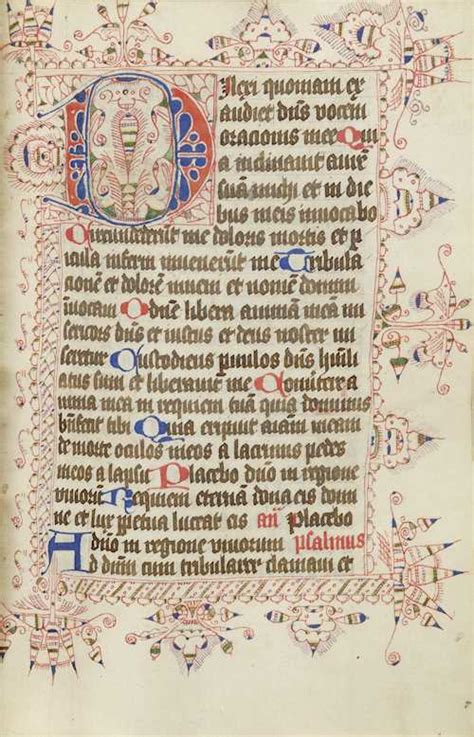 Dilexi quoniam ex
audiet dn̄s vocem
oracionis mee Qui
a inclinauit aurē
suā michi et in die
bus meis inuocabo
Circundederūt me doloris mortis et p
icula inferni inuenerūt me Tribula
cionē et dolorē inueni et nomē domini
inuocaui O dn̄e libera animā meā mi
sericors dn̄s et iustus et deus noster mi
seretur Custodiens puulos dn̄s humili
atus sum et liberauit me Conuerte a
nima mea in requiem tuā quia dominus
bn̄fecit tibi Quia eripuit aīam meam
de morte oculos meos a lacrimis pedes
meos a lapsu Placebo dn̄o in regione
viuorū Requiem eternā dona eis domi
ne et lux ppetua luceat eis an̄ Placebo
dn̄o in regione viuorum psalmus
Ad dn̄m cum tribularer clamaui et